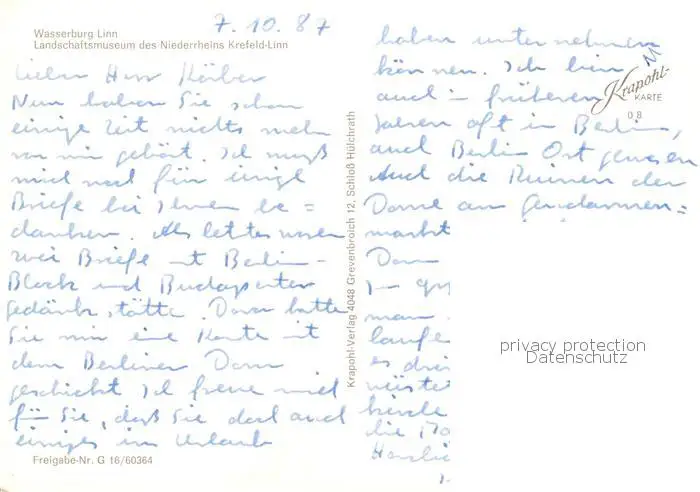 Wasserburg Linn
Landschaftsmuseum des Niederrheins Krefeld-Linn
7.10.87
Lieber Herr Körber
Nun haben Sie schon
einige Zeit nichts mehr
von mir gehört. Ich muß
mich noch für einige
Briefe bei Ihnen be=
danken. Als letztes waren
zwei Briefe mit Berlin-
Block und Budapester
gedänkstätte. Davor hatte
Sie mir eine Karte mit
dem Berliner Dom
geschickt Ich freue mich
für Sie, daß Sie doch auch
einiges im Urlaub
Freigabe-Nr. G 16/60364
Krapohl-Verlag 4048 Grevenbroich 12, Schloß Hülchrath
haben unternehmen
können. Ich bin
auch in früheren
Jahren oft in Berlin,
auch Berlin Ost gewesen
Auch die Ruinen der
Dome am Gendarmen=
markt
Dom
man
laufe
es
die
Krapohl-
KARTE
08
privacy protection
Datenschutz